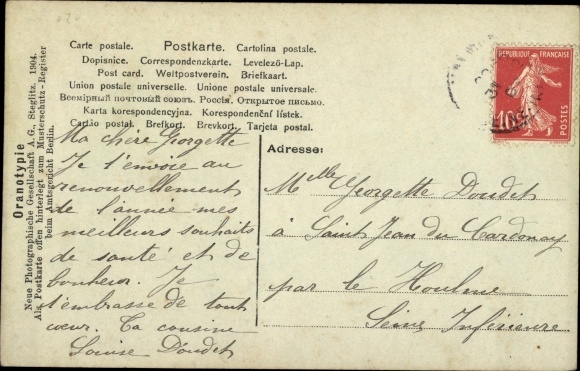 Carte postale. Postkarte. Cartolina postale.
Dopisnice. Correspondenzkarte. Levelezö-Lap.
Post card. Weltpostverein. Briefkaart.
Union postale universelle. Unione postale universale.
Всемірный почтовый союзъ. Россія. Открытое письмо.
Karta korespondencyjna. Korespondenční lístek.
Cartão postal. Brefkort. Brevkort. Tarjeta postal.
Oranotypie
Neue Photographische Gesellschaft A.-G., Steglitz. 1904.
Als Postkarte offen hinterlegt zum Musterschutz-Register
beim Amtsgericht Berlin.
Ma chère Georgette
Je t'envoie au
renouvellement
de l'année mes
meilleurs souhaits
de santé et de
bonheur. Je
t'embrasse de tout
cœur. Ta cousine
Louise Doudet
REPUBLIQUE FRANÇAISE
10
POSTES
Adresse:
Mlle Georgette Doudet
à Saint Jean du Cardonay
par le Houlme
Seine Inférieure